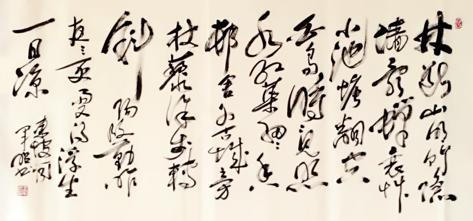 林断山明竹隐
墙乱蝉衰草
小池塘翻空
白鸟時々見照
水红蕖細々香
村舍外古城旁
杖藜徐步轉
斜阳殷勤昨
夜三更雨又得浮生
一日凉
东坡词